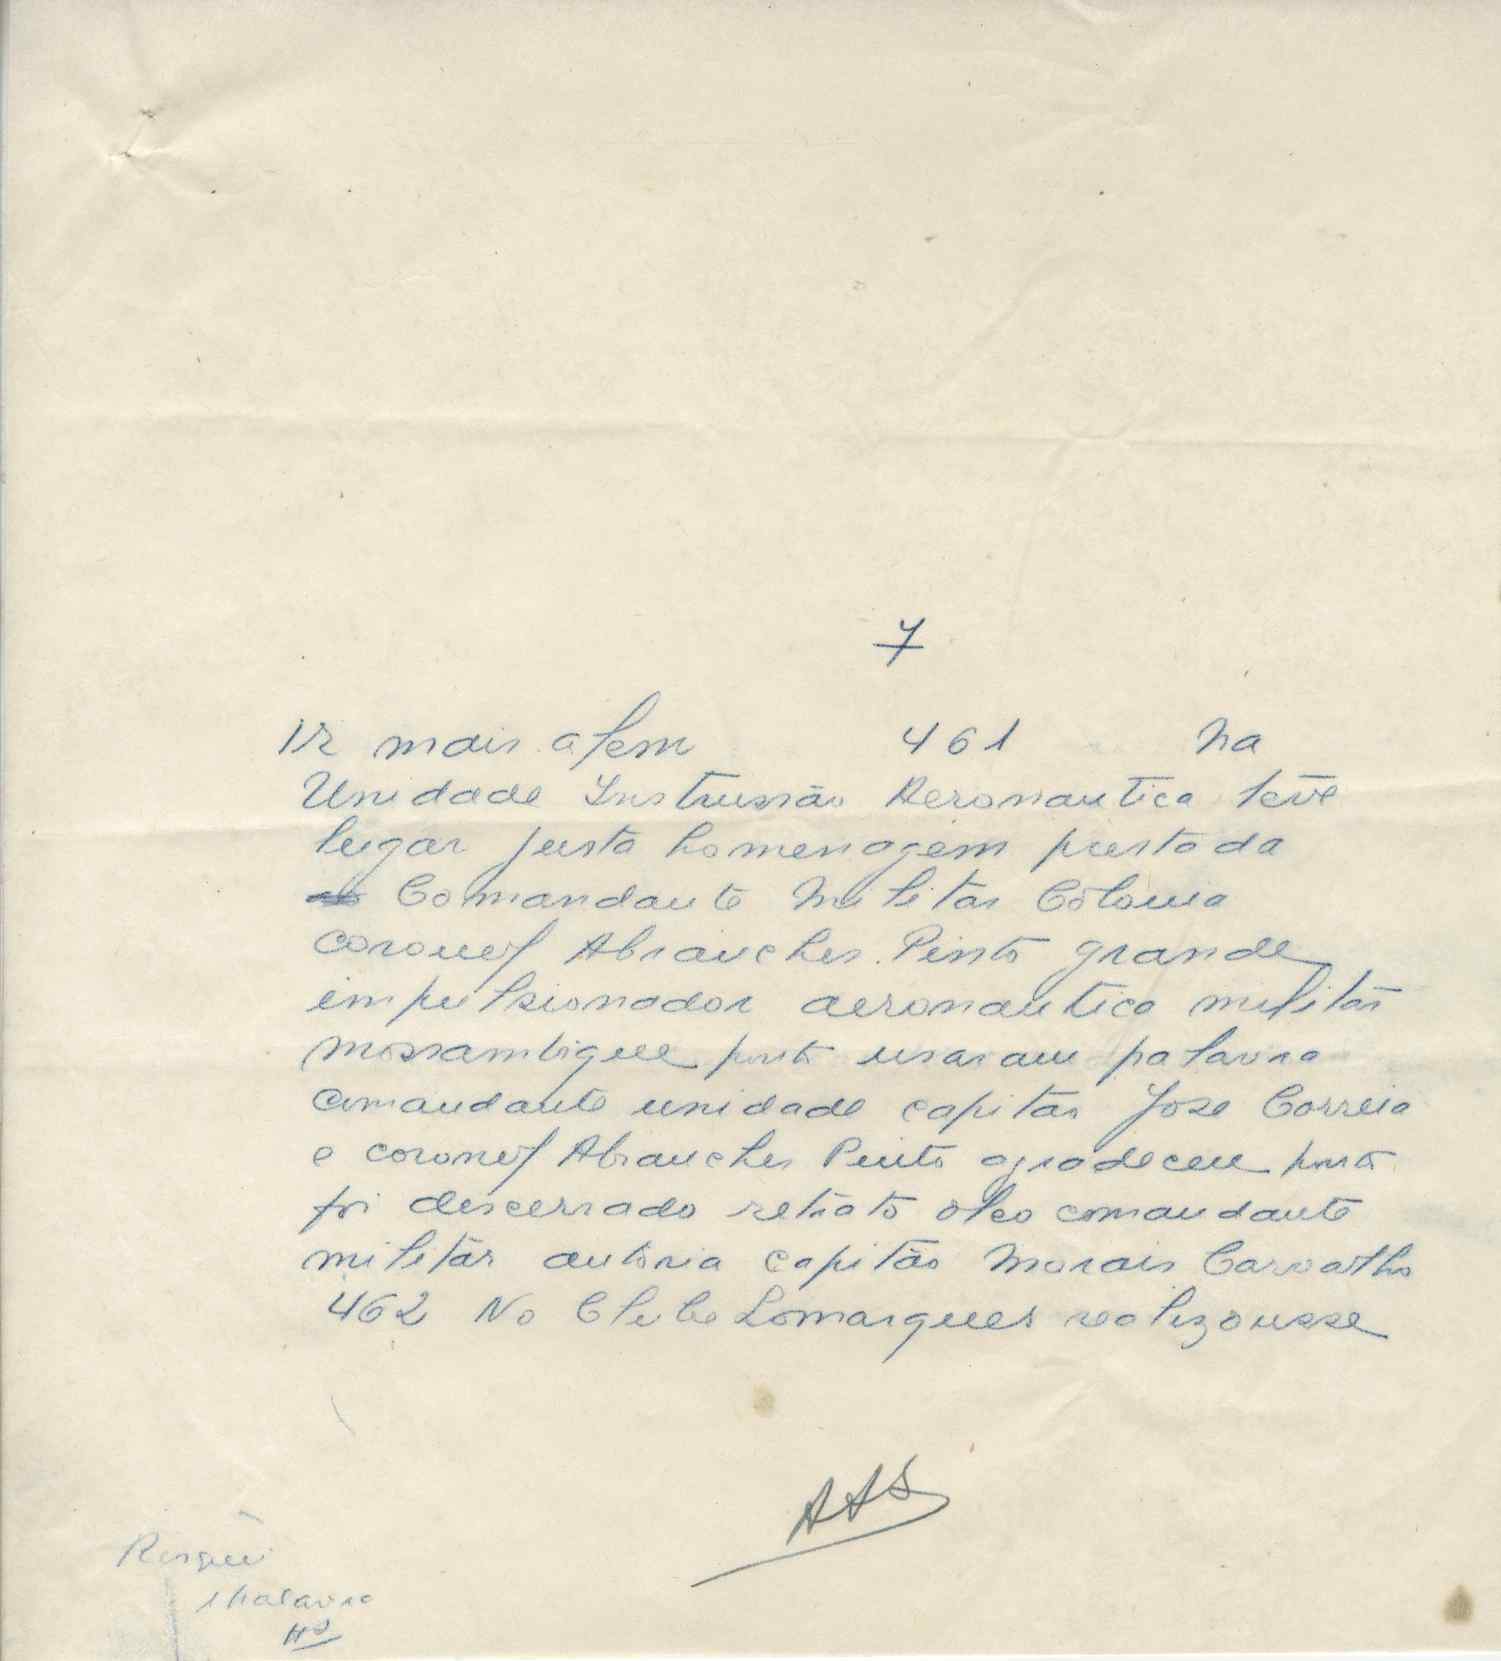 7
ir mais alem 461 Na
Unidade Instrussão Aeronautica teve
lugar justa homenagem prestada
Comandante Militar Colonia
coronel Abranches Pinto grande
impulsionador aeronautica militar
mossambique ponto usaram palavra
comandante unidade capitão Jose Correia
e coronel Abranches Pinto agradeceu ponto
foi descerrado retrato oleo comandante
militar autoria capitão Morais Carvalho
462 No Clube Lomarques realizousse
AAS
1 palavra